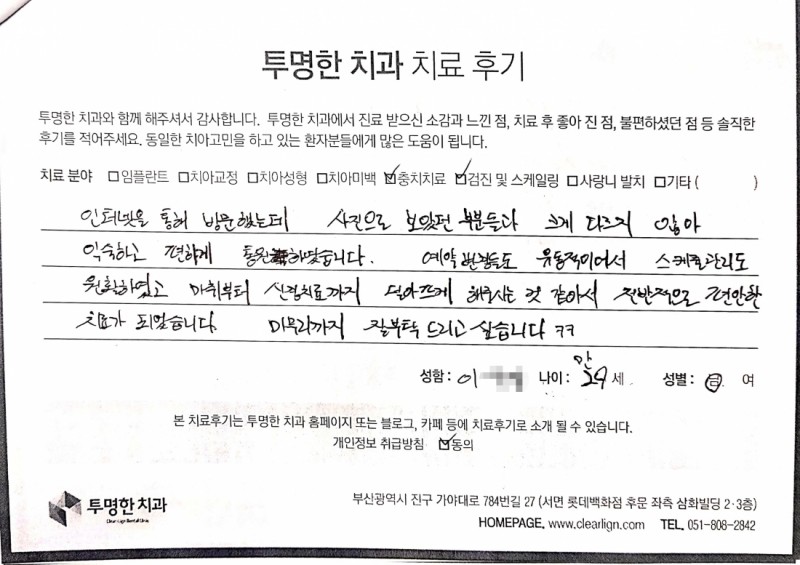 투명한 치과 치료 후기
투명한 치과와 함께 해주셔서 감사합니다. 투명한 치과에서 진료 받으신 소감과 느낀 점, 치료 후 좋아 진 점, 불편하셨던 점 등 솔직한
후기를 적어주세요. 동일한 치아고민을 하고 있는 환자분들에게 많은 도움이 됩니다.
치료 분야 □임플란트 □치아교정 □치아성형 □치아미백 ☑충치치료 ☑검진 및 스케일링 □사랑니 발치 □기타 ( )
인터넷을 통해 방문했는데 사진으로 보았던 부분들과 크게 다르지 않아
익숙하고 편하게 통원하였습니다. 예약변경등도 유동적이어서 스케줄관리도
원활하였고 마취부터 신경치료까지 안아프게 해주시는 것 같아서 전반적으로 편안한
치료가 되었습니다. 마무리까지 잘부탁 드리고 싶습니다 ㅋㅋ
성함 : 이 나이 : 만 29 세 성별 : 남 여
본 치료후기는 투명한 치과 홈페이지 또는 블로그, 카페 등에 치료후기로 소개 될 수 있습니다.
개인정보 취급방침 ☑동의
투명한 치과
Clear Align Dental Clinic
부산광역시 진구 가야대로 784번길 27 (서면 롯데백화점 후문 좌측 삼화빌딩 2·3층)
HOMEPAGE. www.clearlign.com TEL. 051-808-2842